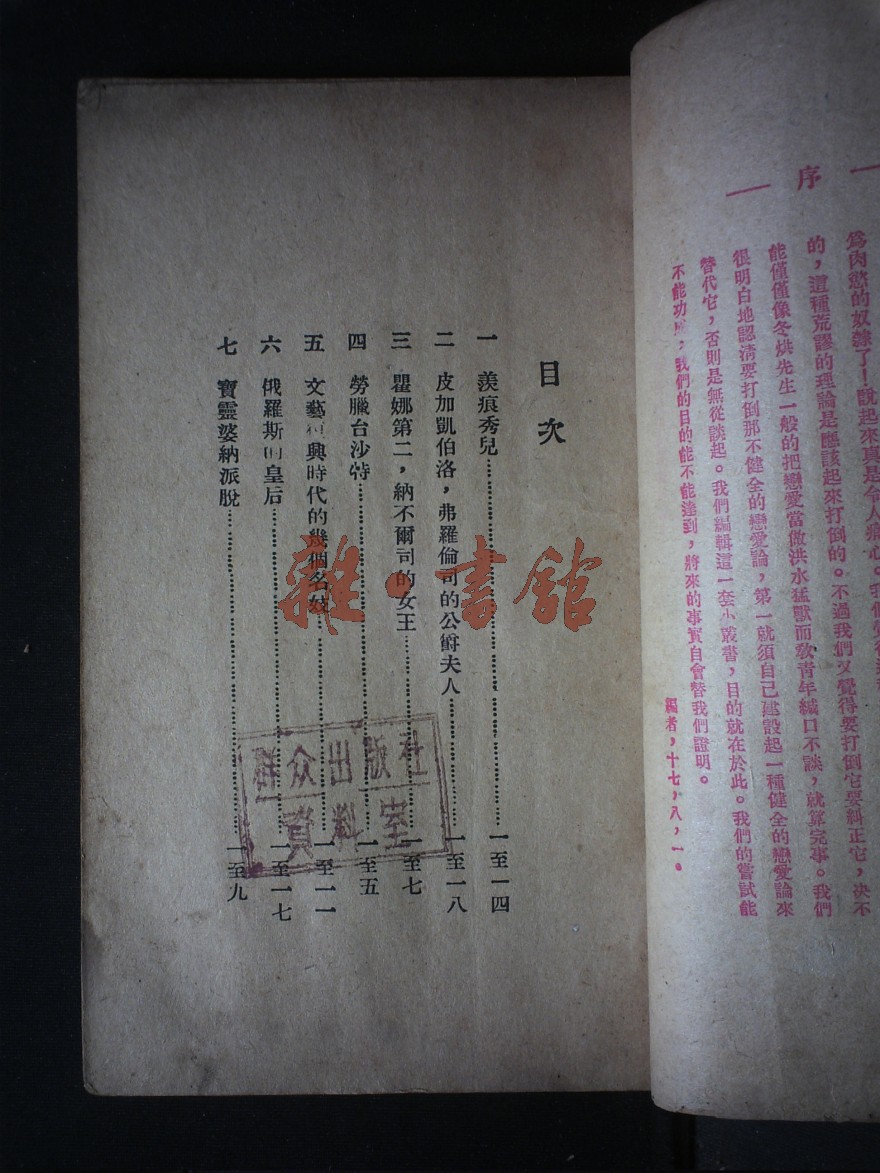 序
爲肉慾的奴隸了！說起來真是令人痛心。我們覺得
的，這種荒謬的理論是應該起來打倒的。不過我們又覺得要打倒它要糾正它，决不
能僅僅像冬烘先生一般的把戀愛當做洪水猛獸而敎青年緘口不談，就算完事。我們
很明白地認清要打倒那不健全的戀愛論，第一就須自己建設起一種健全的戀愛論來
替代它，否則是無從談起。我們編輯這一套小叢書，目的就在於此。我們的嘗試能
不能功成，我們的目的能不能達到，將來的事實自會替我們證明。
編者，十七，八，一。
目次
一 羨痕秀兒 一至一四
二 皮加凱伯洛，弗羅倫司的公爵夫人 一至一八
三 瞿娜第二，納不爾司的女王 一至七
四 勞臘台沙特 一至五
五 文藝復興時代的幾個名妓 一至一一
六 俄羅斯的皇后 一至一七
七 寶靈婆納派脫 一至九
群众出版社
資料室
雜·書館